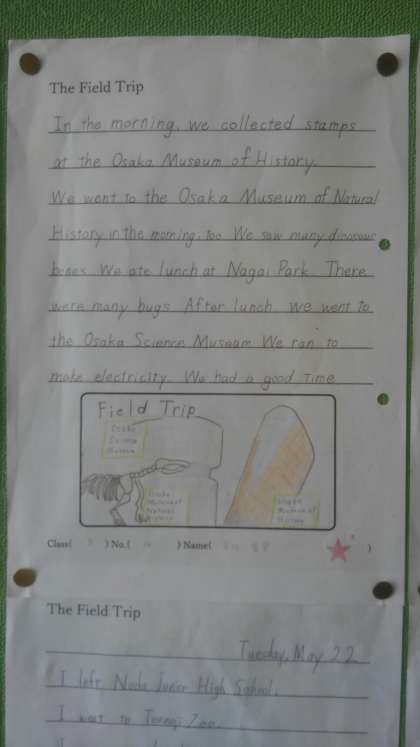 The Field Trip
In the morning, we collected stamps
at the Osaka Museum of History.
We went to the Osaka Museum of Natural
History in the morning, too. We saw many dinosaur
bones. We ate lunch at Nagai Park. There
were many bugs. After lunch, we went to
the Osaka Science Museum. We ran to
make electricity. We had a good time.
Field Trip
Osaka
Science
Museum
Osaka
Museum of
Natural
History
Osaka
Museum of
History
Class( ) No.( ) Name( )
The Field Trip
Tuesday, May 22
I left Noda Junior High School.
I went to Tennoji Zoo.